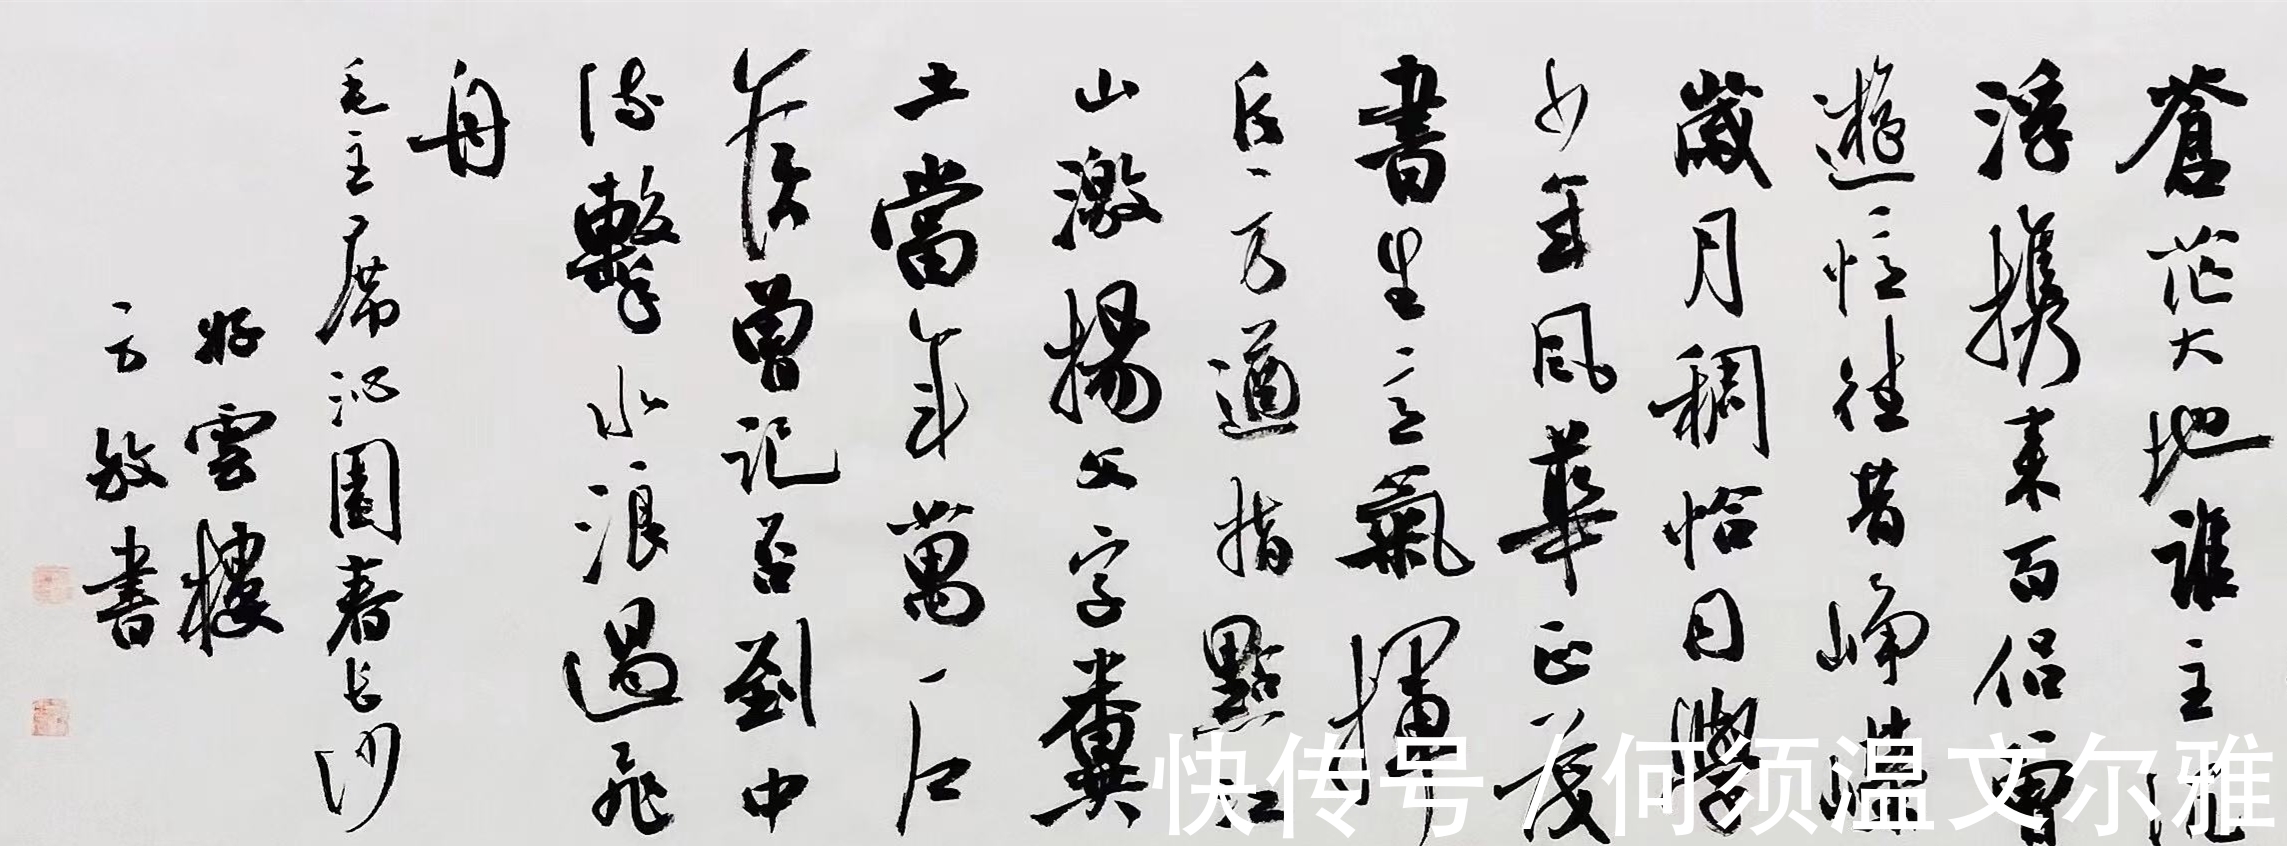 蒼茫大地誰主沉
浮攜來百侣曾
遊憶往昔崢嶸
歲月稠恰同學
少年風華正茂
書生意氣揮
斥方遒指點江
山激揚文字糞
土當年萬户
侯曾記否到中
流擊水浪遏飛
舟
毛主席沁園春長沙
好雲樓
方書
快传号/何须温文尔雅